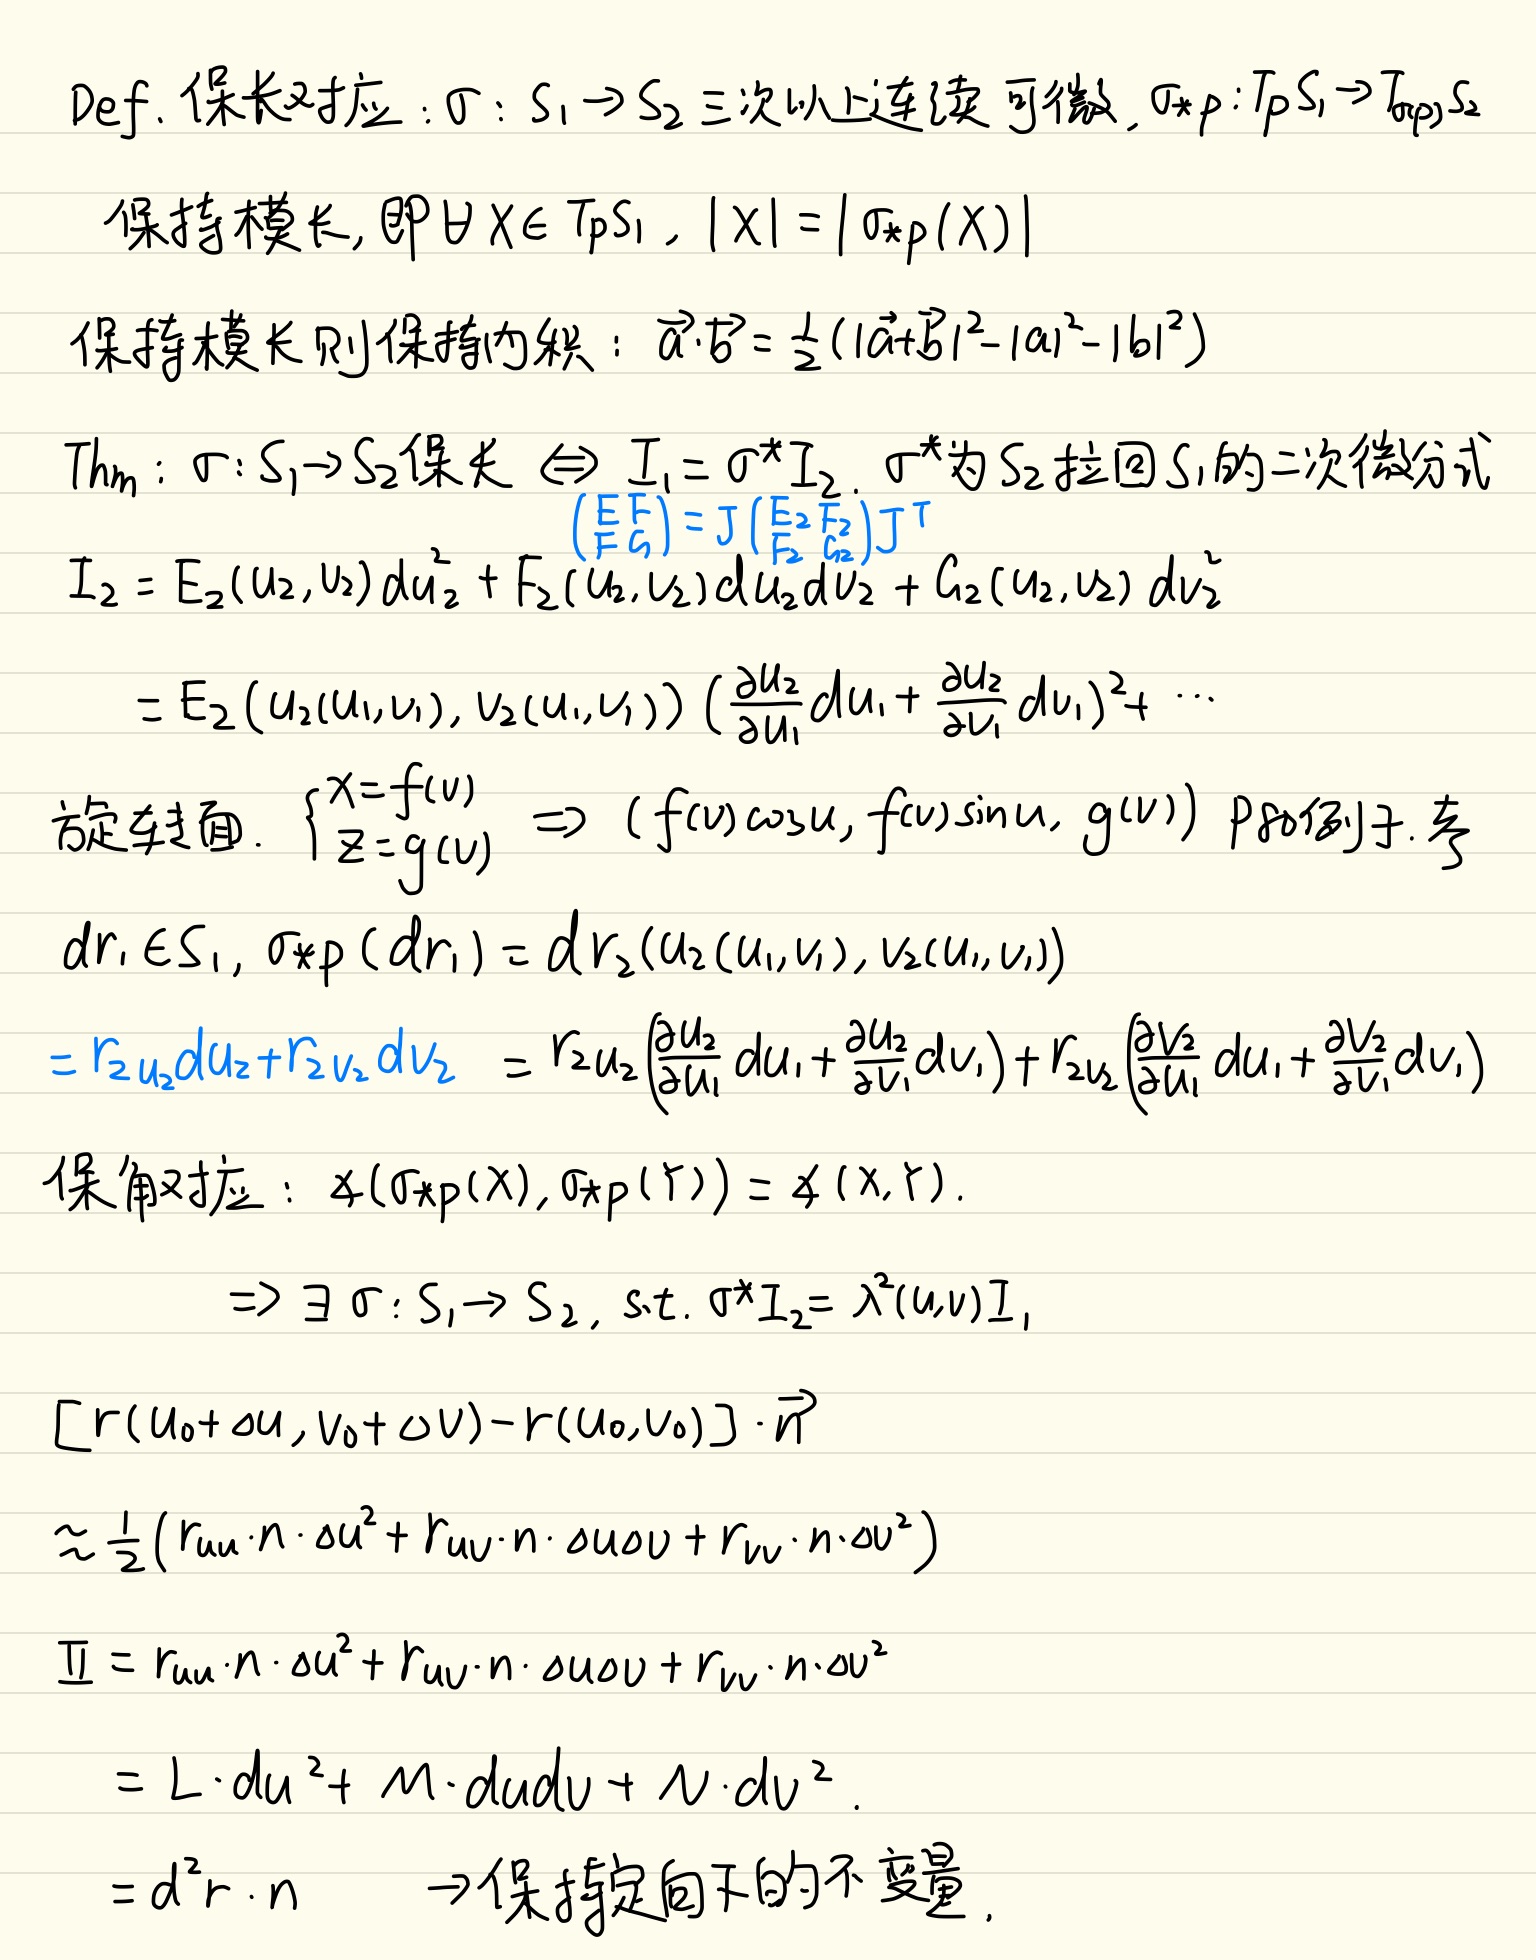 Def. 保长对应 : σ : S₁ → S₂ 三次以上连续可微, σ_{*p} : T_pS₁ → T_{σ(p)}S₂
保持模长, 即 ∀ X ∈ T_pS₁, |X| = |σ_{*p}(X)|
保持模长则保持内积 : a⃗·b⃗ = ½(|a⃗+b⃗|² - |a|² - |b|²)
Thm : σ : S₁ → S₂ 保长 ⇔ I₁ = σ*I₂. σ*为S₂拉回S₁的二次微分式
(E F; F G) = J (E₂ F₂; F₂ G₂) Jᵀ
I₂ = E₂(u₂, v₂) du₂² + F₂(u₂, v₂) du₂dv₂ + G₂(u₂, v₂) dv₂²
= E₂(u₂(u₁, v₁), v₂(u₁, v₁)) (∂u₂/∂u₁ du₁ + ∂u₂/∂v₁ dv₁)² + ···
旋转面. { x = f(v) z = g(v) ⇒ (f(v)cosu, f(v)sinu, g(v)) P80例子.考
dr₁ ∈ S₁, σ_{*p}(dr₁) = dr₂(u₂(u₁, v₁), v₂(u₁, v₁))
= r_{2u₂}du₂ + r_{2v₂}dv₂ = r_{2u₂}(∂u₂/∂u₁ du₁ + ∂u₂/∂v₁ dv₁) + r_{2v₂}(∂v₂/∂u₁ du₁ + ∂v₂/∂v₁ dv₁)
保角对应 : ∡(σ_{*p}(X), σ_{*p}(Y)) = ∡(X, Y).
⇒ ∃ σ : S₁ → S₂, s.t. σ*I₂ = λ²(u,v)I₁
[r(u₀+Δu, v₀+Δv) - r(u₀, v₀)] · n⃗
≈ ½(r_{uu}·n·Δu² + r_{uv}·n·ΔuΔv + r_{vv}·n·Δv²)
Ⅱ = r_{uu}·n·Δu² + r_{uv}·n·ΔuΔv + r_{vv}·n·Δv²
= L·du² + M·dudv + N·dv².
= d²r·n → 保持定向下的不变量.